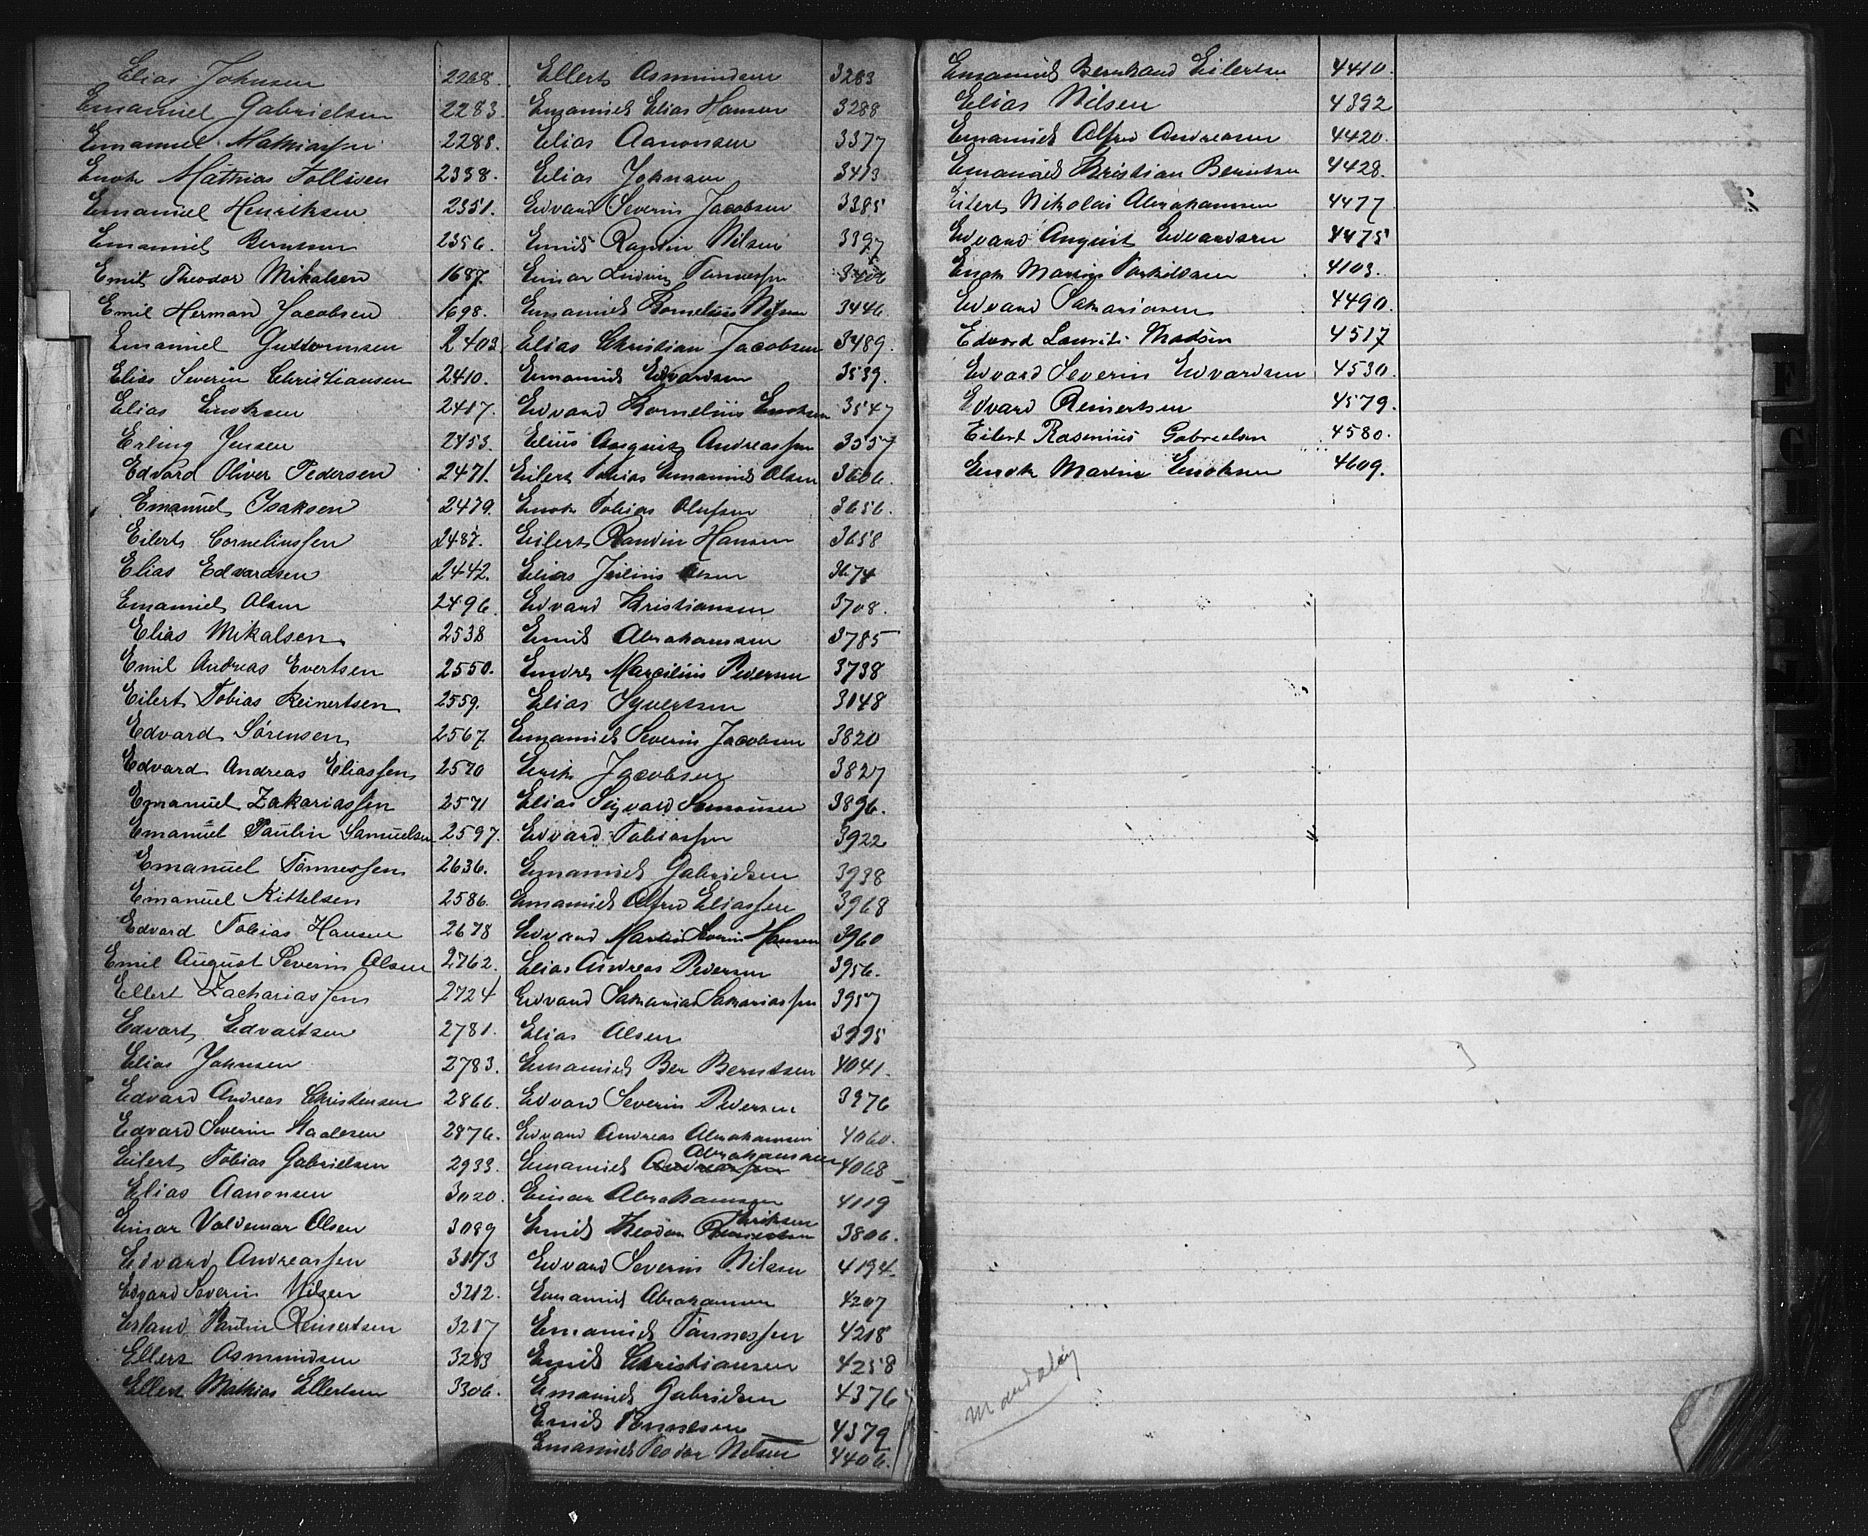 Elias Johnsen 2268.
Emanuel Gabrielsen 2283.
Emanuel Mathiassen 2288.
Enok Mathias Tollisen 2338.
Emanuel Henriksen 2351.
Emanuel Berntsen 2356.
Emil Theodor Mikalsen 1687.
Emil Herman Jacobsen 1698.
Emanuel Guttormsen 2403
Elias Severin Christiansen 2410.
Elias Enoksen 2417.
Erling Jensen 2453.
Edvard Oliver Pedersen 2471.
Emanuel Isaksen 2479.
Eilert Corneliussen 2487.
Elias Edvardsen 2442.
Emanuel Olsen 2496.
Elias Mikalsen 2538
Emil Andreas Evertsen 2550.
Eilert Tobias Reinertsen 2559.
Edvard Sørensen 2567
Edvard Andreas Eliassen 2570
Emanuel Zakariassen 2571
Emanuel Paulin Samuelsen 2597.
Emanuel Tønnessen 2636.
Emanuel Kittelsen 2586.
Edvard Tobias Hansen 2678
Emil August Severin Olsen 2762.
Ellert Zachariassen 2724
Edvart Edvartsen 2781.
Elias Johnsen 2783.
Edvard Andreas Christensen 2866.
Edvard Severin Staalesen 2876.
Eilert Tobias Gabrielsen 2933.
Elias Aanonsen 3020.
Einar Valdemar Olsen 3089
Edvard Andreassen 3173
Edvard Severin Nilsen 3212.
Erland Paulin Reinertsen 3217
Ellert Osmundsen 3283
Ellert Mathias Ellertsen 3306.
Ellert Osmundsen 3283
Emanuel Elias Hansen 3288
Elias Aanonsen 3377
Elias Johnsen 3413
Edvard Severin Jacobsen 3385
Emil Ramin Nilsen 3397
Einar Ludvig Tønnessen
Emanuel Kornelius Nilsen 3446.
Elias Christian Jacobsen 3489.
Emanuel Edvardsen 3539.
Edvard Kornelius Enoksen 3547
Elius August Andreassen 3557
Eilert Tobias Emanuel Olsen 3606.
Enok Tobias Olufsen 3656.
Eilert Randin Hansen 3658
Elias Julius Olsen 3674
Edvard Kristiansen 3708.
Emil Abrahamsen 3785
Endre Marselius Pedersen 3738
Elias Syvertsen 3048
Emanuel Severin Jacobsen 3820
Erik Jacobsen 3827
Elias Sigvard Simonsen 3896.
Edvard Tobiassen 3922
Emanuel Gabrielsen 3938
Emanuel Alfred Eliassen 3968
Edvard Martin Severin Hansen 3960
Elias Andreas Pedersen 3956.
Edvard Sakarias Sakariassen 3957
Elias Olsen 3995
Emanuel Ber Berntsen 4041.
Edvard Severin Pedersen 3976
Edvard Andreas Abrahamsen 4060.
Abrahamsen
Emanuel Andreassen 4068
Einar Abrahamsen 4119
Eriksen
Emil Theodor 3806.
Edvard Severin Nilsen 4194
Emanuel Abrahamsen 4207
Emanuel Tønnessen 4218
Emil Christiansen 4258
Emanuel Gabrielsen 4376
Emil Tønnesen 4379
Emanuel Teodor Nilsen 4406.
Emanuel Bernhard Eilertsen 4410.
Elias Nilsen 4392
Emanuel Alfred Andreasen 4420.
Emanuel Kristian Berntsen 4428.
Eilert Nikolai Abrahamsen 4477
Edvard August Edvardsen 4475
Enok Marius Torkildsen 4103.
Edvard Sakariasen 4490.
Edvard Laurits Madsen 4517
Edvard Severin Edvardsen 4530.
Edvard Reinertsen 4579.
Eilert Rasenius Gabrielsen 4580.
Enok Martin Enoksen 4609.
Mandaløy